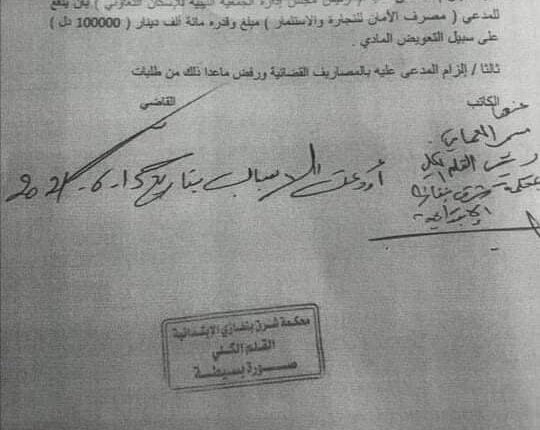 رئيس مجلس إدارة الجمعية الليبية للإسكان التعاوني ) بأن يدفع
للمدعي ( مصرف الأمان للتجارة والاستثمار ) مبلغ وقدره مائة ألف دينار ( 100000 دل )
على سبيل التعويض المادي .
ثالثا / إلزام المدعى عليه بالمصاريف القضائية ورفض ماعدا ذلك من طلبات
الكاتب القاضي
أودعت الأسباب بتاريخ
رئيس القلم الكلي
بمحكمة شرق بنغازي
الابتدائية
محكمة شرق بنغازي الابتدائية
القلم الكلي
صورة بسيطة